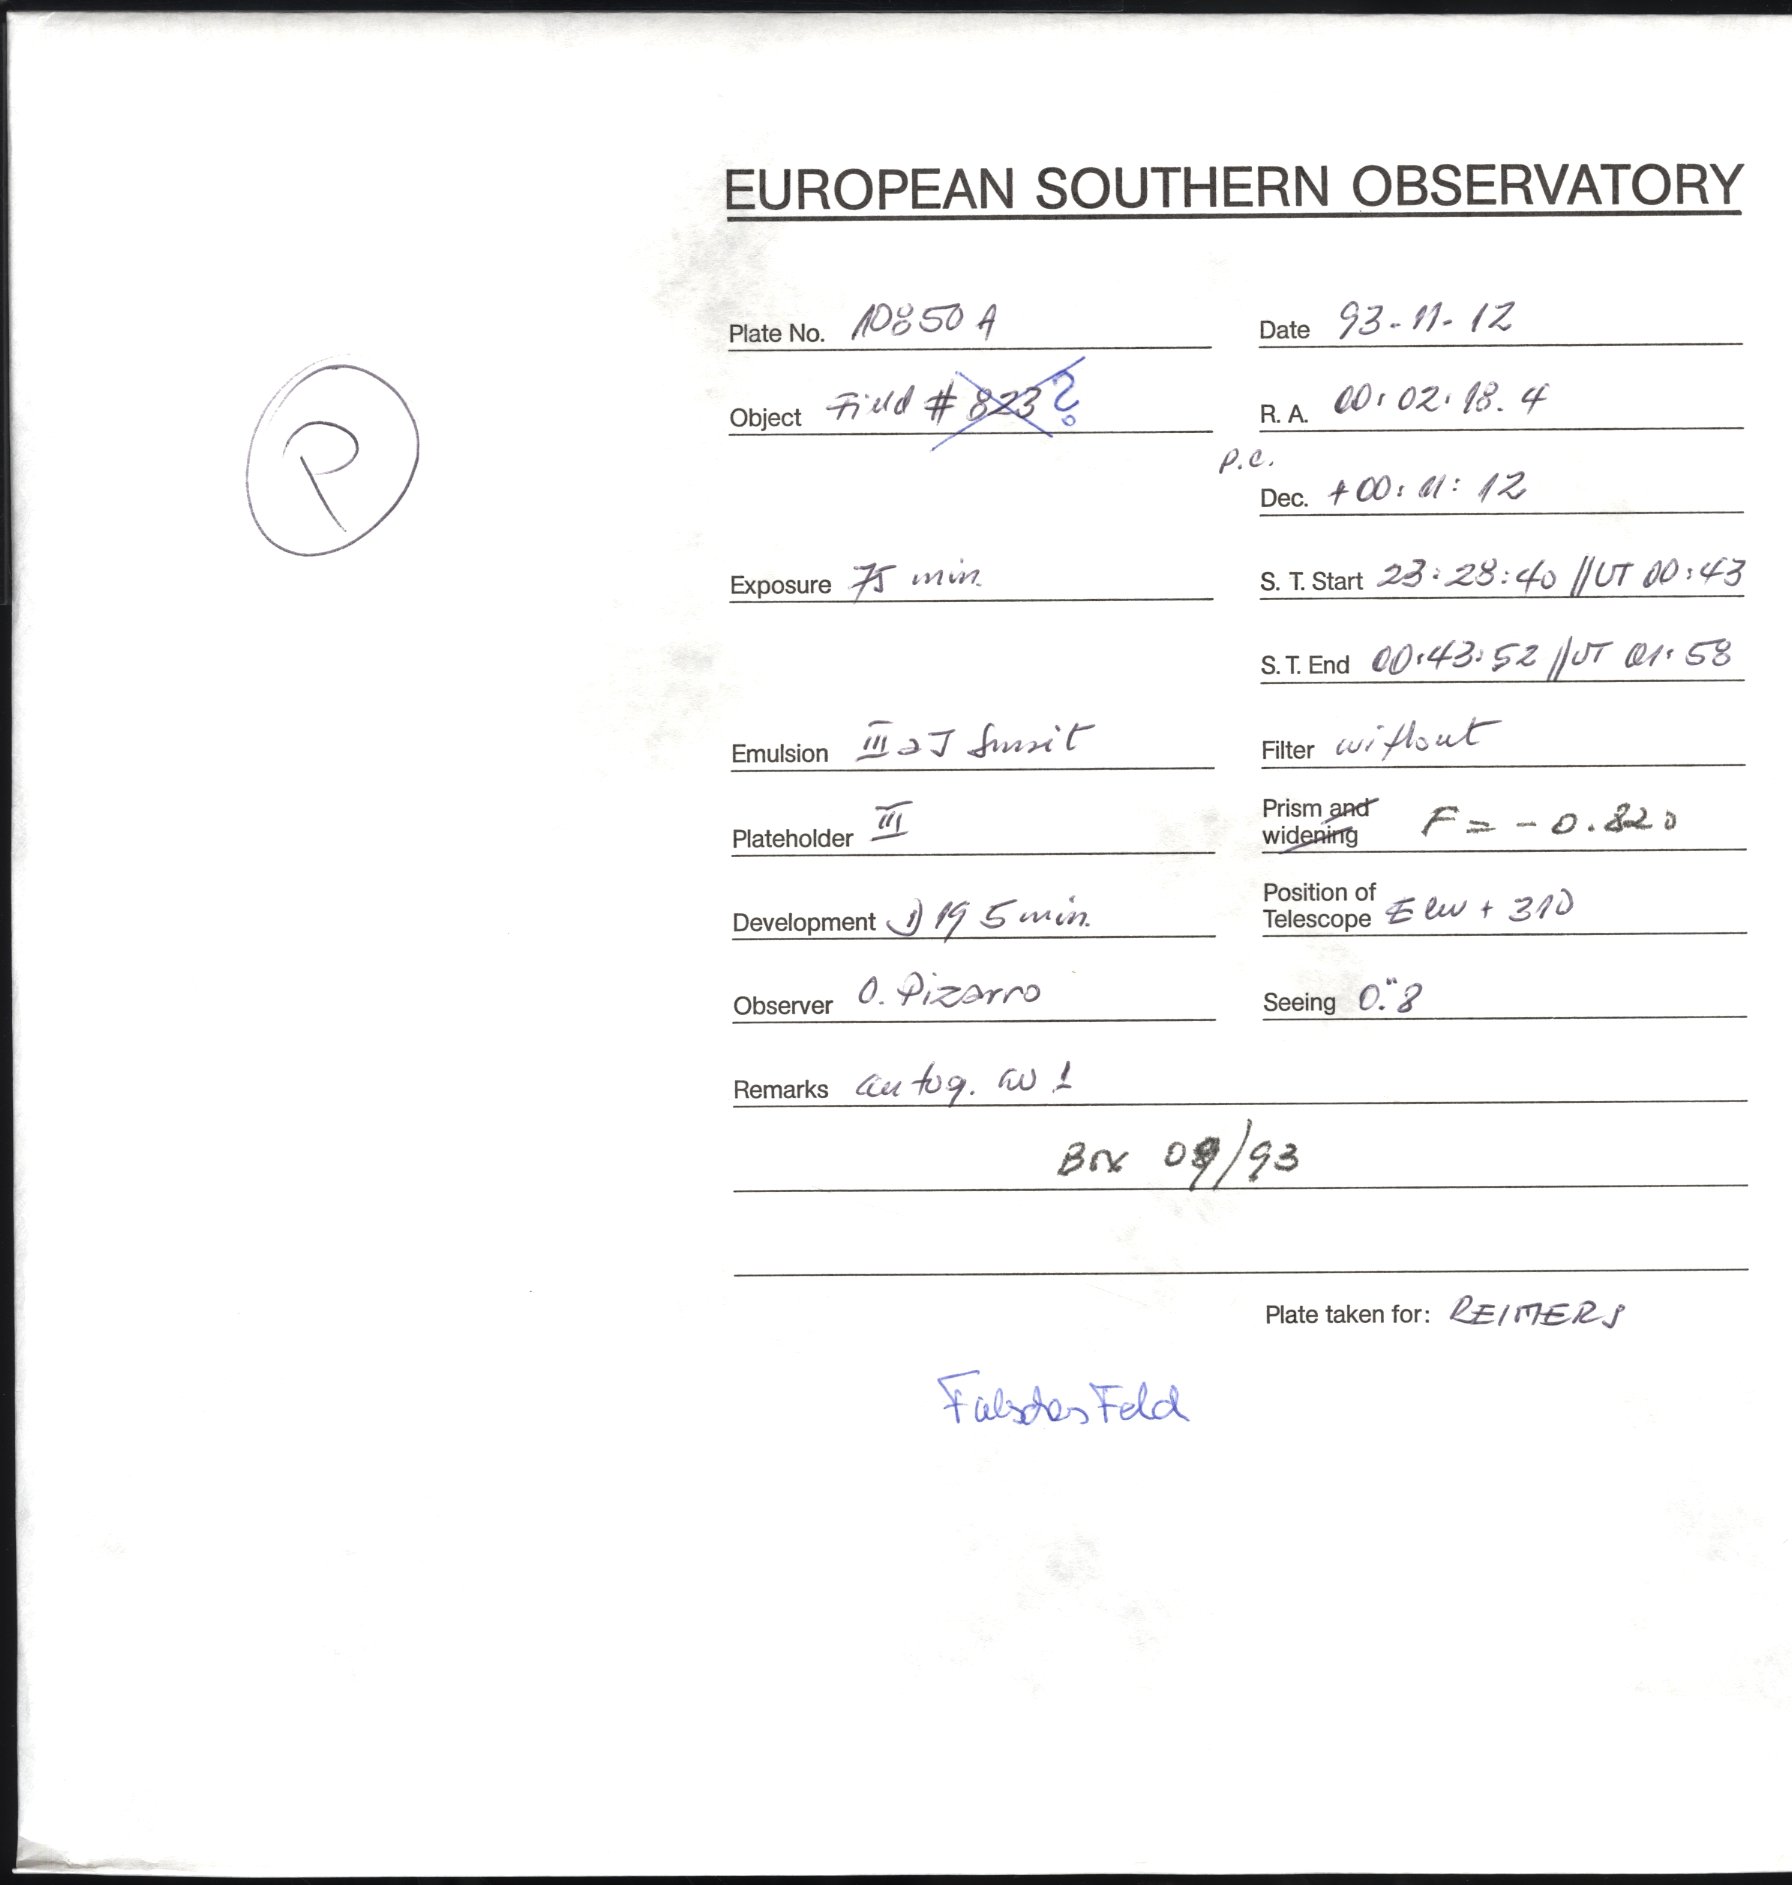 EUROPEAN SOUTHERN OBSERVATORY
Plate No. 10850 A Date 93-11-12
Object Field # 823 ? R. A. 00:02:18.4
P
p.c.
Dec. +00:11:12
Exposure 75 min. S. T. Start 23:28:40 // UT 00:43
S. T. End 00:43:52 // UT 01:58
Emulsion III aJ Filter without
Plateholder III Prism and widening F = - 0.820
Development 19 5 min. Position of Telescope + 310
Observer O. Pizarro Seeing 0."8
Remarks autog.
Box 09/93
Plate taken for: REIMERS
Falsches Feld